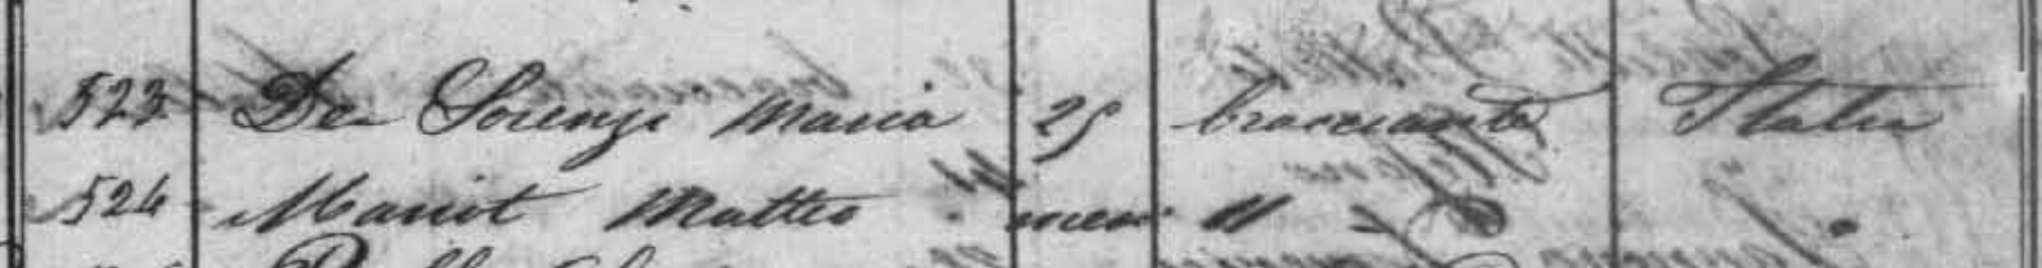 523 De Lorenzi Maria 25 bracciante Italia
524 Mariot Matteo mesi 11